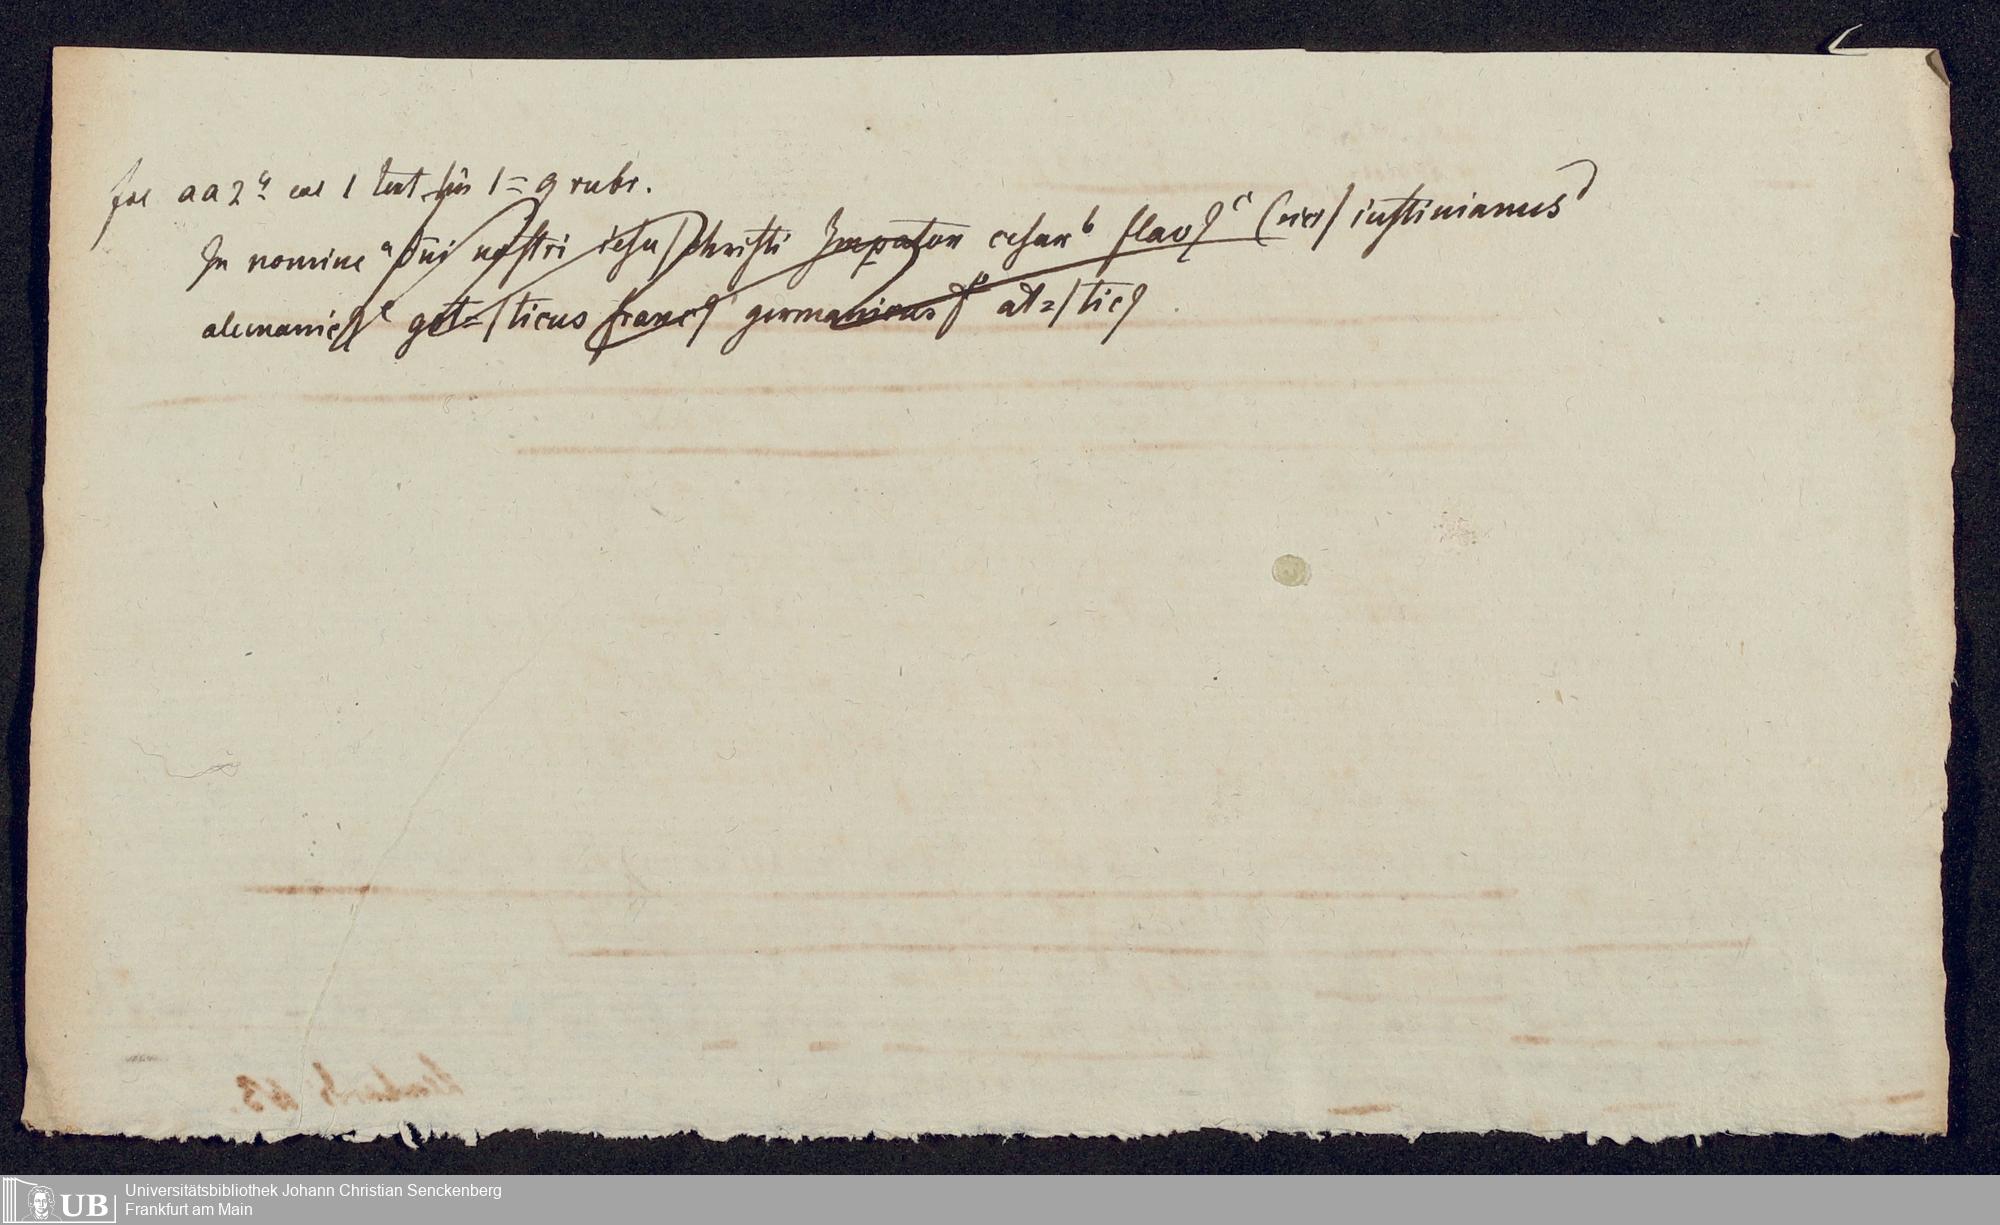 fol aa 2ª col 1 text lin 1 = 9 rubr.
In nomine ª dñi nostri iesu | christi Impator cesar ᵇ flav9 ᶜ (sic) | iustinianus ᵈ
alemanic9 ᵉ got= | ticus franc9 germanicus ᶠ at= | tic9
Universitätsbibliothek Johann Christian Senckenberg
Frankfurt am Main
UB